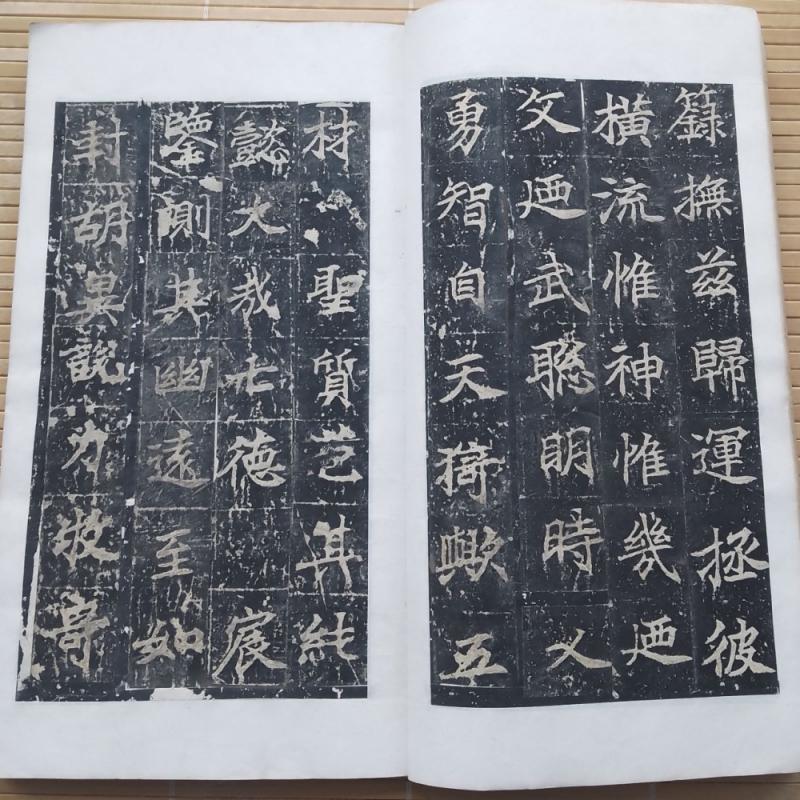 籙撫茲歸運拯彼
橫流惟神惟幾迺
文迺武聰明時乂
勇智自天猗歟五
材聖質苞其純
懿大哉七德宸
鑒測其幽遠至如
封胡異說力牧奇